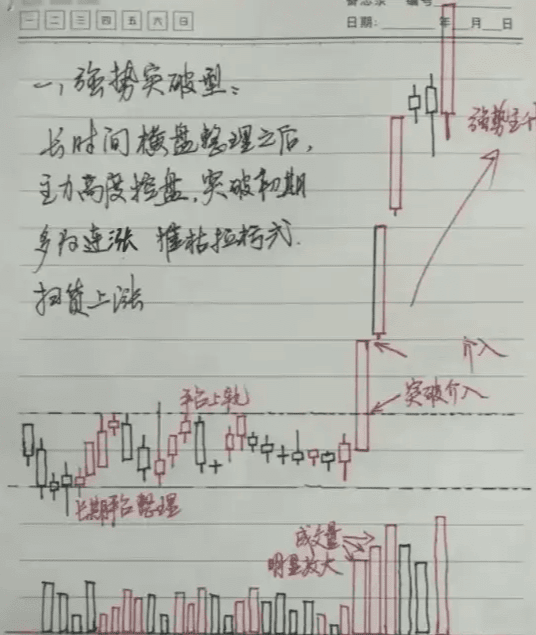 一 二 三 四 五 六 日
备忘录 编号
日期: 年 月 日
一、强势突破型:
长时间横盘整理之后,
主力高度控盘,突破初期
多为连涨 摧枯拉朽式
扫货上涨
强势主升
介入
突破介入
平台上轨
长期平台整理
成交量
明显放大